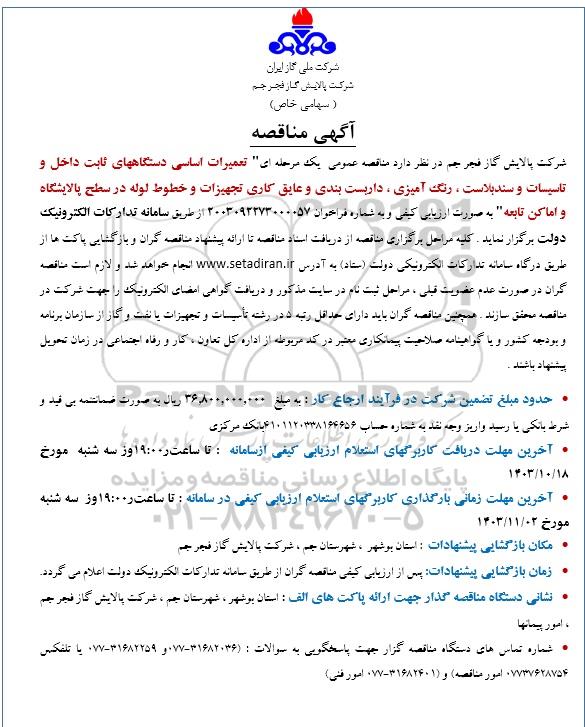 شرکت ملی گاز ایران
شرکت پالایش گاز فجر جم
( سهامی خاص )
آگهی مناقصه
شرکت پالایش گاز فجر جم در نظر دارد مناقصه عمومی یک مرحله ای" تعمیرات اساسی دستگاههای ثابت داخل و
تاسیسات و سندبلاست ، رنگ آمیزی ، داربست بندی و عایق کاری تجهیزات و خطوط لوله در سطح پالایشگاه
و اماکن تابعه" به صورت ارزیابی کیفی و به شماره فراخوان ۲۰۰۳۰۹۲۲۷۳۰۰۰۰۵۷ از طریق سامانه تدارکات الکترونیک
دولت برگزار نماید . کلیه مراحل برگزاری مناقصه از دریافت اسناد مناقصه تا ارائه پیشنهاد مناقصه گران و بازگشایی پاکت ها از
طریق درگاه سامانه تدارکات الکترونیکی دولت (ستاد) به آدرس www.setadiran.ir انجام خواهد شد و لازم است مناقصه
گران در صورت عدم عضویت قبلی ، مراحل ثبت نام در سایت مذکور و دریافت گواهی امضای الکترونیک را جهت شرکت در
مناقصه محقق سازند . همچنین مناقصه گران باید دارای حداقل رتبه ۵ در رشته تأسیسات و تجهیزات یا نفت و گاز از سازمان برنامه
و بودجه کشور و یا گواهینامه صلاحیت پیمانکاری معتبر در کد مربوطه از اداره کل تعاون ، کار و رفاه اجتماعی در زمان تحویل
پیشنهاد باشند .
• حدود مبلغ تضمین شرکت در فرآیند ارجاع کار : به مبلغ ۳۶,۸۰۰,۰۰۰,۰۰۰ ریال به صورت ضمانتنمه بی قید و
شرط بانکی یا رسید واریز وجه نقد به شماره حساب ۴۱۰۱۱۲۰۳۳۸۱۶۴۶۵۶بانک مرکزی
• آخرین مهلت دریافت کاربرگهای استعلام ارزیابی کیفی ازسامانه : تا ساعت۱۹:۰۰روز سه شنبه مورخ
۱۴۰۳/۱۰/۱۸
• آخرین مهلت زمانی بارگذاری کاربرگهای استعلام ارزیابی کیفی در سامانه : تا ساعت۱۹:۰۰روز سه شنبه
مورخ ۱۴۰۳/۱۱/۰۲
• مکان بازگشایی پیشنهادات : استان بوشهر ، شهرستان جم ، شرکت پالایش گاز فجر جم
• زمان بازگشایی پیشنهادات: پس از ارزیابی کیفی مناقصه گران از طریق سامانه تدارکات الکترونیک دولت اعلام می گردد.
• نشانی دستگاه مناقصه گذار جهت ارائه پاکت های الف : استان بوشهر ، شهرستان جم ، شرکت پالایش گاز فجر جم
، امور پیمانها
• شماره تماس های دستگاه مناقصه گزار جهت پاسخگویی به سوالات : (۳۱۶۸۲۰۳۶-۰۷۷ و ۳۱۶۸۲۲۵۹-۰۷۷ یا تلفکس
۰۷۷۳۷۶۲۸۷۵۴ امور مناقصه) و (۳۱۶۸۲۴۰۱-۰۷۷ امور فنی)
ParsNamadData
پایگاه اطلاع رسانی مناقصه و مزایده
۰۲۱-۸۸۳۴۹۶۷۰-۵